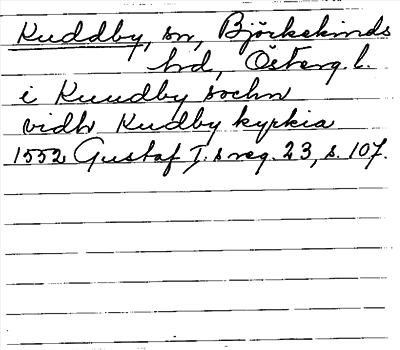 Kuddby, sn, Björkekinds
hd, Österg. l.
i Kuudby sochn
vidh Kudby kyrkia
1552 Gustaf I:s reg. 23, s. 107.